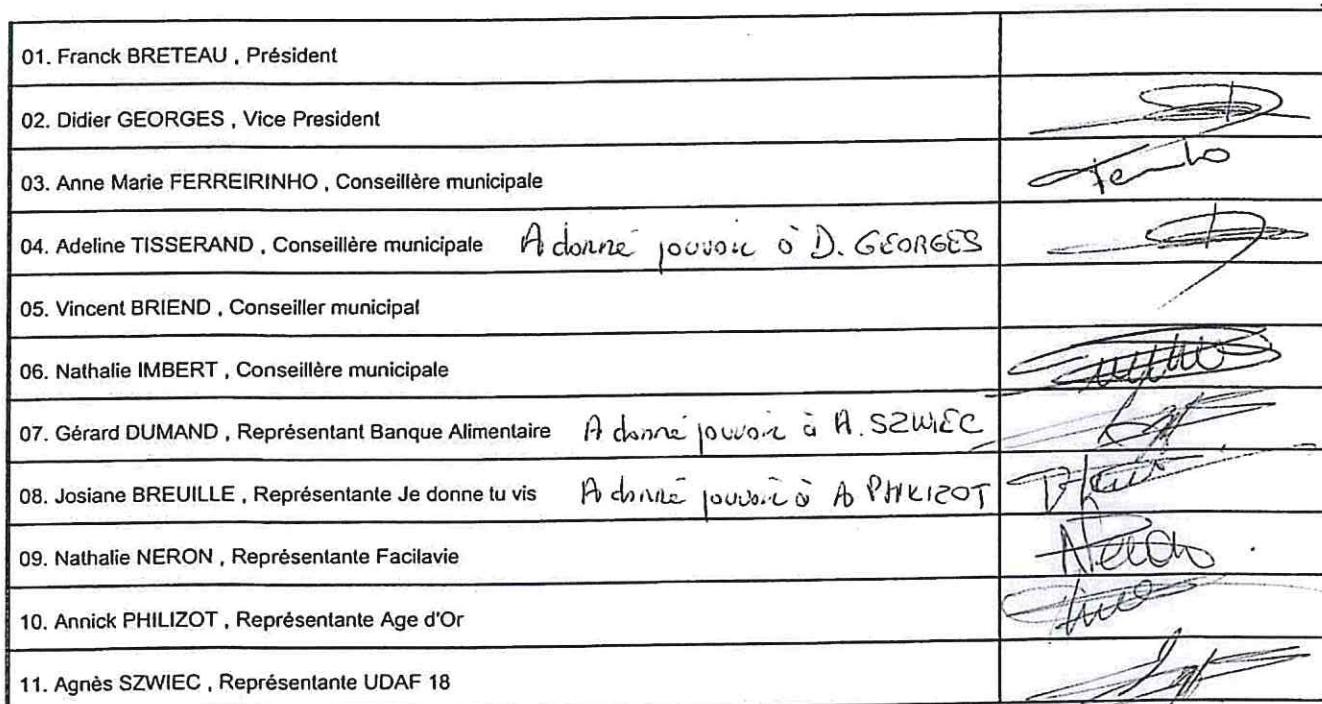 01. Franck BRETEAU , Président
02. Didier GEORGES , Vice President
03. Anne Marie FERREIRINHO , Conseillère municipale
04. Adeline TISSERAND , Conseillère municipale A donné pouvoir à D. GEORGES
05. Vincent BRIEND , Conseiller municipal
06. Nathalie IMBERT , Conseillère municipale
07. Gérard DUMAND , Représentant Banque Alimentaire A donné pouvoir à A. SZWIEC
08. Josiane BREUILLE , Représentante Je donne tu vis A donné pouvoir à A PHILIZOT
09. Nathalie NERON , Représentante Facilavie Neron
10. Annick PHILIZOT , Représentante Age d'Or
11. Agnès SZWIEC , Représentante UDAF 18